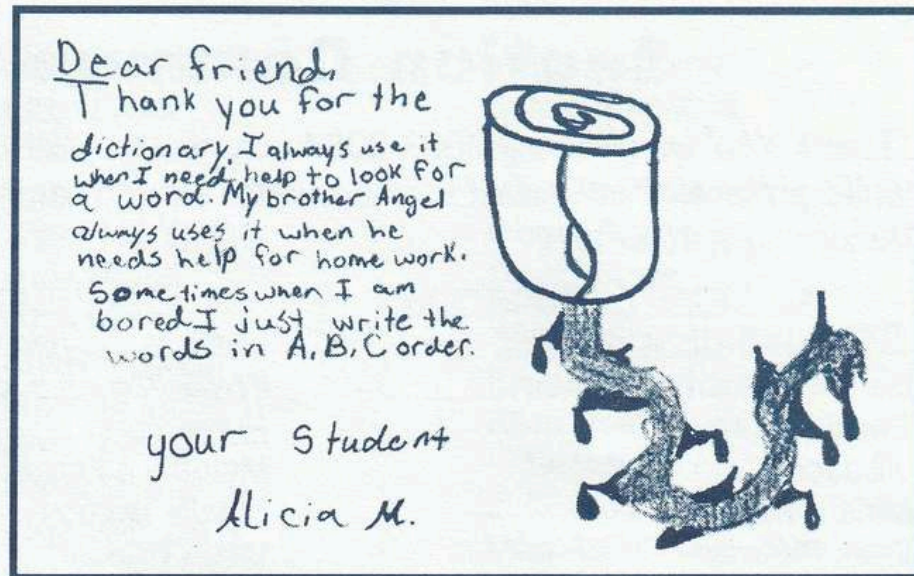 Dear friend,
Thank you for the
dictionary. I always use it
when I need help to look for
a word. My brother Angel
always uses it when he
needs help for home work.
Sometimes when I am
bored I just write the
words in A, B, C order.
your Student
Alicia M.